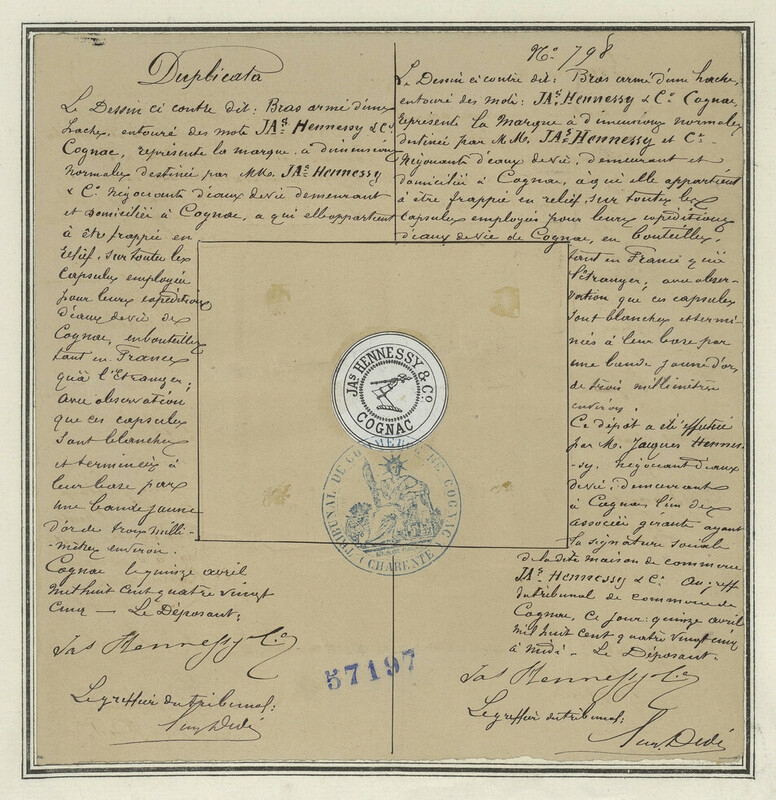 Duplicata
Le Dessin ci contre dit: Bras armé d'une
hache, entouré des mots JAs Hennessy & Co.
Cognac, représente la marque, a dimensions
Normales destinée par MM. JAs Hennessy
& Co. Négociants d'eaux de vie demeurant
et domiciliés à Cognac, a qui elle appartient
à être frappée en
relief, sur toutes les
Capsules employées
pour leurs expéditions
d'eaux de vie de
Cognac, en bouteilles
tant en France
qu'à l'Etranger;
avec observation
que ces capsules
sont blanches
et terminées à
leur base par
une bande jaune
d'or de trois milli-
-mètres environ.
Cognac le quinze avril
mil huit cent quatre vingt
cinq — Le Déposant:
Jas Hennessy & Co
Le greffier du tribunal:
No. 798
Le Dessin ci contre dit: Bras armé d'une hache,
entouré des mots: JAs. Hennessy & Co. Cognac,
représente la Marque à dimensions normales
destinée par M.M. JAs Hennessy et Co.
Négociants d'eaux de vie, demeurant et
domiciliés à Cognac, à qui elle appartient
à être frappée en relief, sur toutes les
Capsules employées pour leurs expéditions
d'eaux de vie de Cognac, en bouteilles,
tant en France qu'à
l'étranger; avec obser-
vation que ces capsules
sont blanches et termi-
nées à leur base par
une bande jaune d'or
de trois millimètres
environ.
Ce dépôt a été effectué
par M. Jacques Hennes-
-sy, négociant d'eaux
de vie, demeurant
à Cognac, l'un des
associés gérants ayant
la signature sociale
de la dite maison de commerce
JAs Hennessy & Co. Au greffe
du tribunal de commerce de
Cognac, ce jour: quinze avril
mil huit cent quatre vingt cinq
à midi - Le Déposant.
Jas Hennessy & Co
Le greffier du tribunal:
JAs HENNESSY & Co.
COGNAC
TRIBUNAL DE COMMERCE DE COGNAC
(CHARENTE)
57197